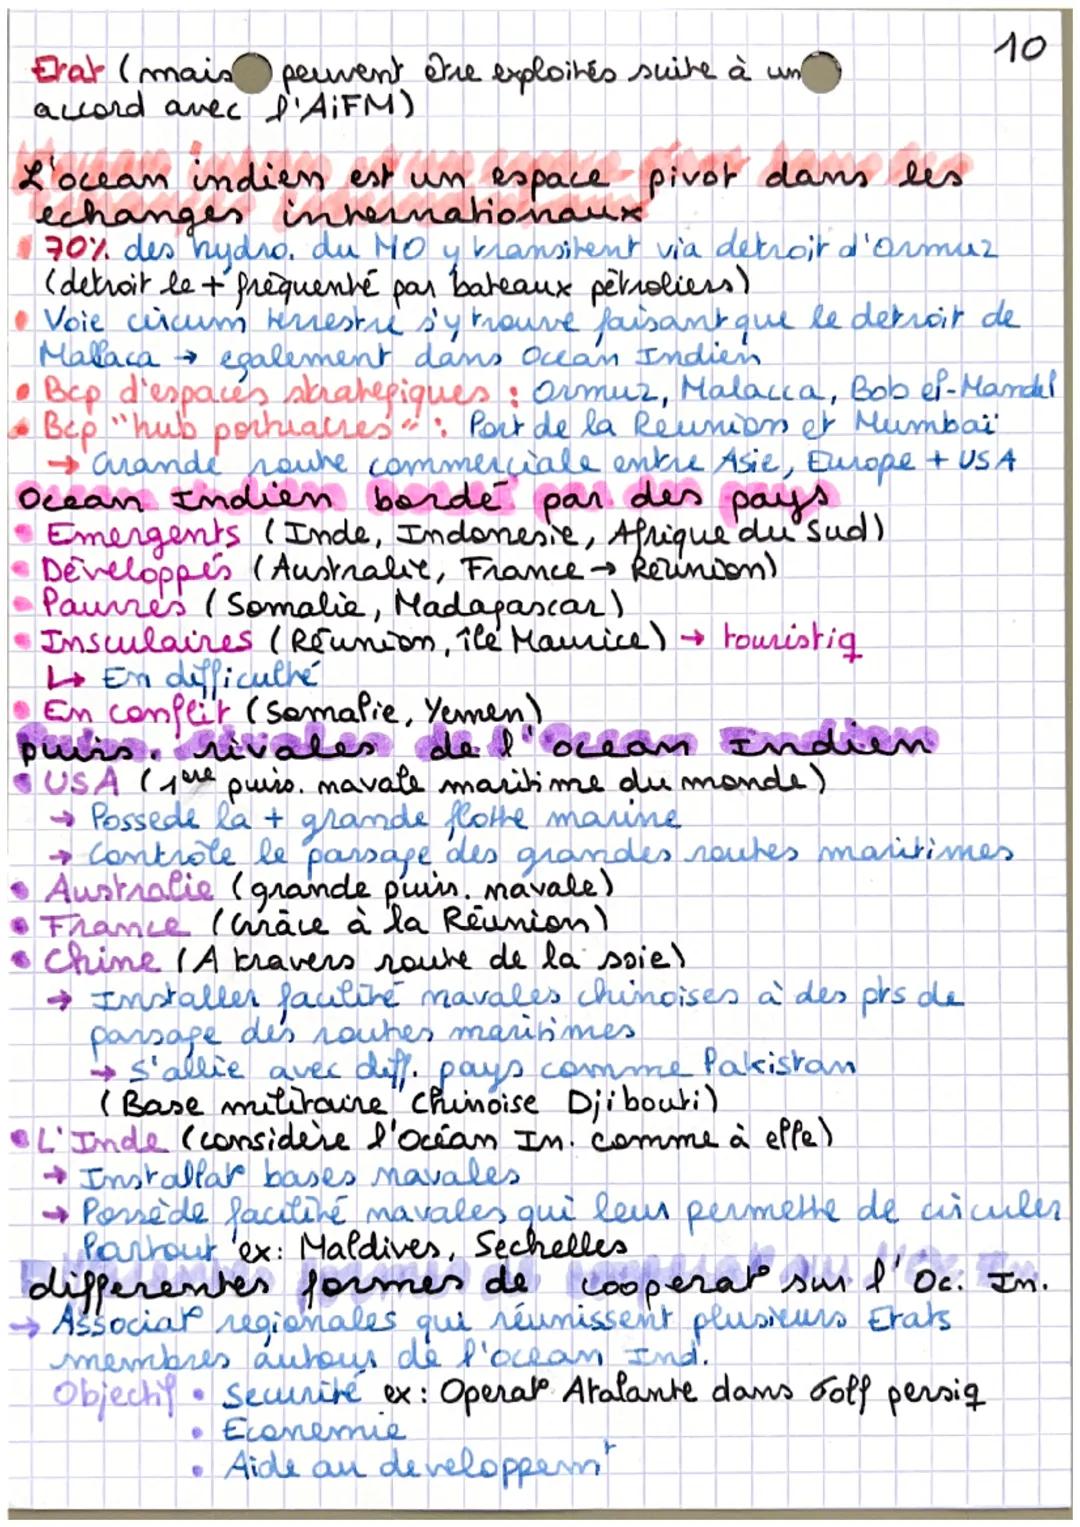 10
Etat (mais peuvent être exploités suite à un
accord avec l'AiFM)
L'ocean indien est un espace pivot dans les
echanges internationaux
70% des hydro. du MO y transitent via detroit d'Ormuz
(detroit le + fréquenté par bateaux pétroliers)
Voie circum terrestre s'y trouve faisant que le detroit de
Mallaca → egalement dans Ocean Indien
Bcp d'espaces strategiques : Ormuz, Malacca, Bob el-Mandel
Bcp "hub portuaires" : Port de la Réunion et Mumbaï
→ Grande route commerciale entre Asie, Europe + USA
Ocean Indien bordé par des pays
Emergents (Inde, Indonesie, Afrique du Sud)
Développés (Australie, France → Réunion)
Pauvres (Somalie, Madagascar)
Insculaires (Réunion, île Maurice) → touristiq
↳ En difficulté
En conflit (Somalie, Yemen)
puiss. rivales de l'ocean Indien
USA (1ère puiss. navale maritime du monde)
→ Possede la + grande flotte marine
→ Contrôle le passage des grandes routes maritimes
Australie (grande puiss. navale)
France (Grâce à la Réunion)
Chine (A travers route de la soie)
→ Installer facilité navales chinoises à des pts de
passage des routes maritimes
→ S'allie avec diff. pays comme Pakistan
(Base militaire Chinoise Djibouti)
L'Inde (considère l'Océan In. comme à elle)
→ Installat° bases navales
→ Possède facilité navales qui leur permette de circuler
Partout ex: Maldives, Sechelles
differentes formes de cooperat° sur l'Oc. In.
→ Associat° regionales qui réunissent plusieurs Etats
membres autour de l'ocean Ind.
Objectif • Securité ex: Operat° Atalante dans Golf persiq
• Economie
• Aide au developpemt